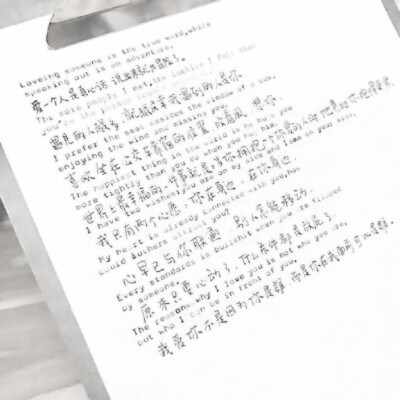 Loveing someone is the true word,while
speaking out is an adventure.
爱一个人是真心话，说出来就是大冒险了。
The more people I met,the luckier I felt that
you're the
遇见的人越多，就越庆幸我遇到的人是你。
I prefer the seat besides the window of a bus,
enjoying the wind and missing you.
喜欢坐在公交车靠窗的位置，吹着风，想你。
The happiest thing in the world is to hug him
more tightly than you do when you
世界上最幸福的一件事就是当你拥抱一个你爱的人时他竟把你抱得更紧
I have two wishes:you are on my side and
on your side.
我只有两个心愿：你在身边，在你身边。
My heart is already connected with you,how
could others attract you?
心早已与你联通，别人怎能移动。
Every standards is bullshit when you is
by someone.
原来只要心动了，什么条件都是废话了。
The reason why I love you is not who you are,
but who I can be in front of you.
我爱你不是因为你是谁，而是你在我面前可以是谁。